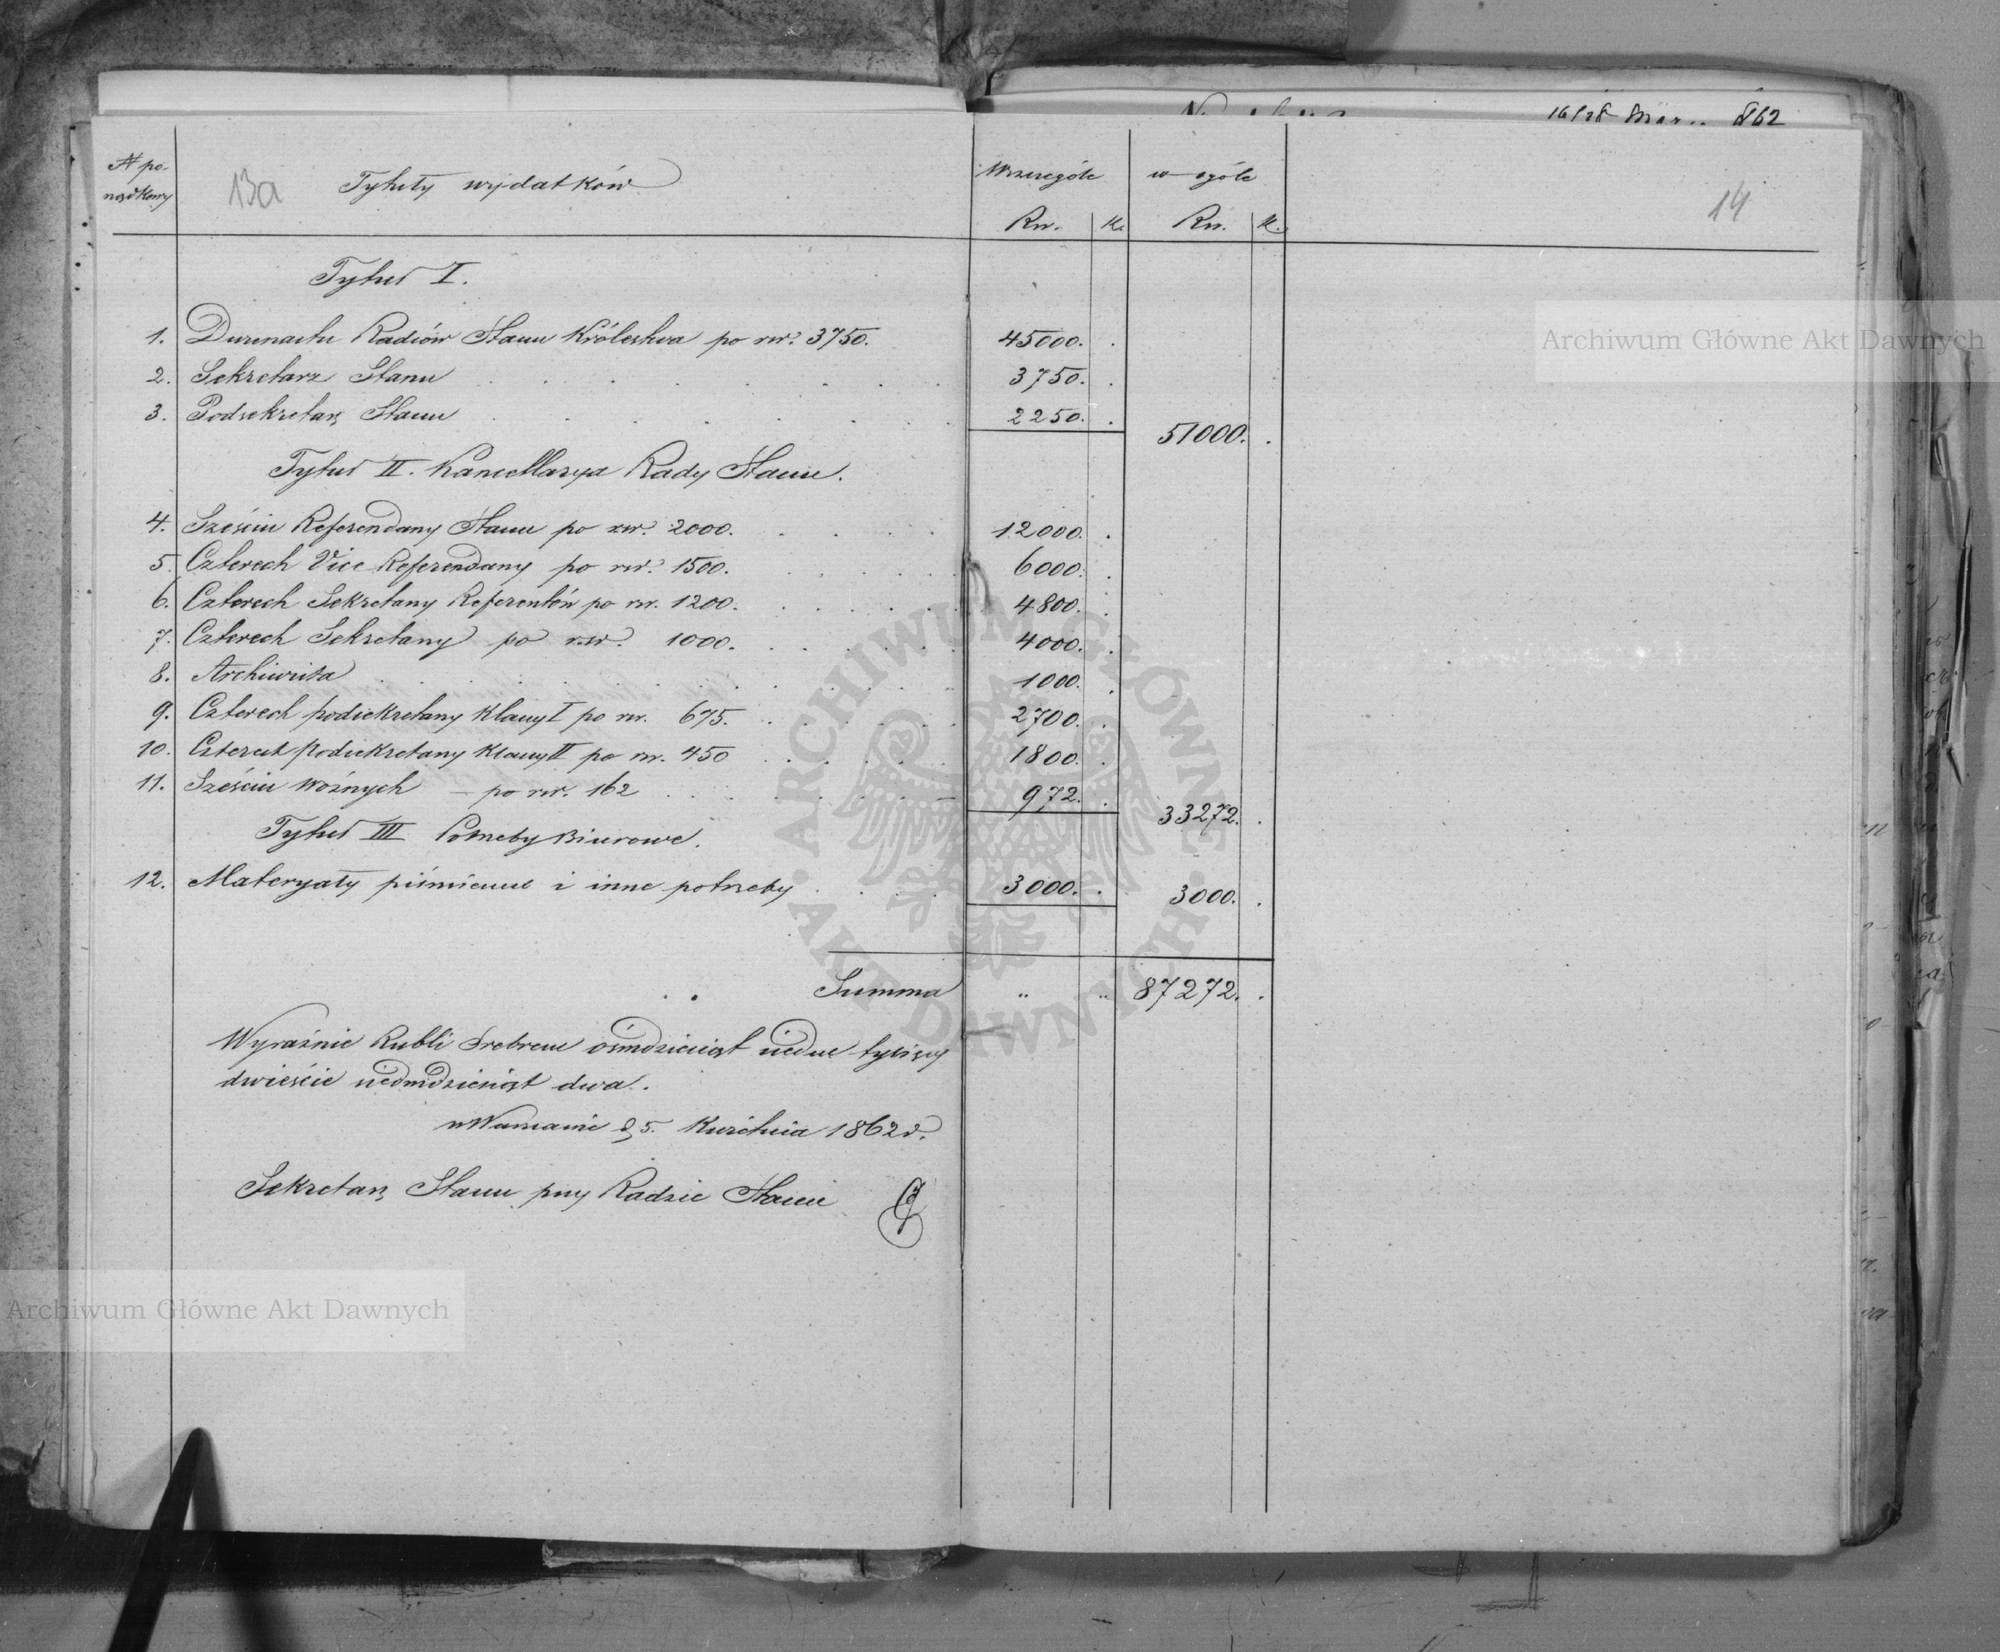 16/28 Marca 862
№ po-
rządkowy
13a
Tytuły wydatków
W szczególe
w ogóle
14
Rsr.
K.
Rsr.
K.
Tytuł I.
1. Dwunastu Radców Stanu Królestwa po rsr. 3750. 45000.
2. Sekretarz Stanu 3750.
3. Podsekretarz Stanu 2250. 51000.
Tytuł II. Kancellarya Rady Stanu.
4. Sześciu Referendarzy Stanu po rsr. 2000. 12000.
5. Czterech Vice Referendarzy po rsr. 1500. 6000.
6. Czterech Sekretarzy Referentów po rsr. 1200. 4800.
7. Czterech Sekretarzy po rsr. 1000. 4000.
8. Archiwista 1000.
9. Czterech podsekretarzy klassy I po rsr. 675. 2700.
10. Czterech podsekretarzy klassy II po rsr. 450 1800.
11. Sześciu woźnych – po rsr. 162 972. 33272.
Tytuł III Potrzeby Biurowe.
12. Materyały piśmienne i inne potrzeby 3000. 3000.
Summa " " 87272.
Wyraźnie Rubli Srebrem ośmdziesiąt siedm tysięcy
dwieście siedmdziesiąt dwa.
w Warszawie d. 5. Kwietnia 1862 r.
Sekretarz Stanu przy Radzie Stanu
Archiwum Główne Akt Dawnych
Archiwum Główne Akt Dawnych
ARCHIWUM GŁÓWNE AKT DAWNYCH